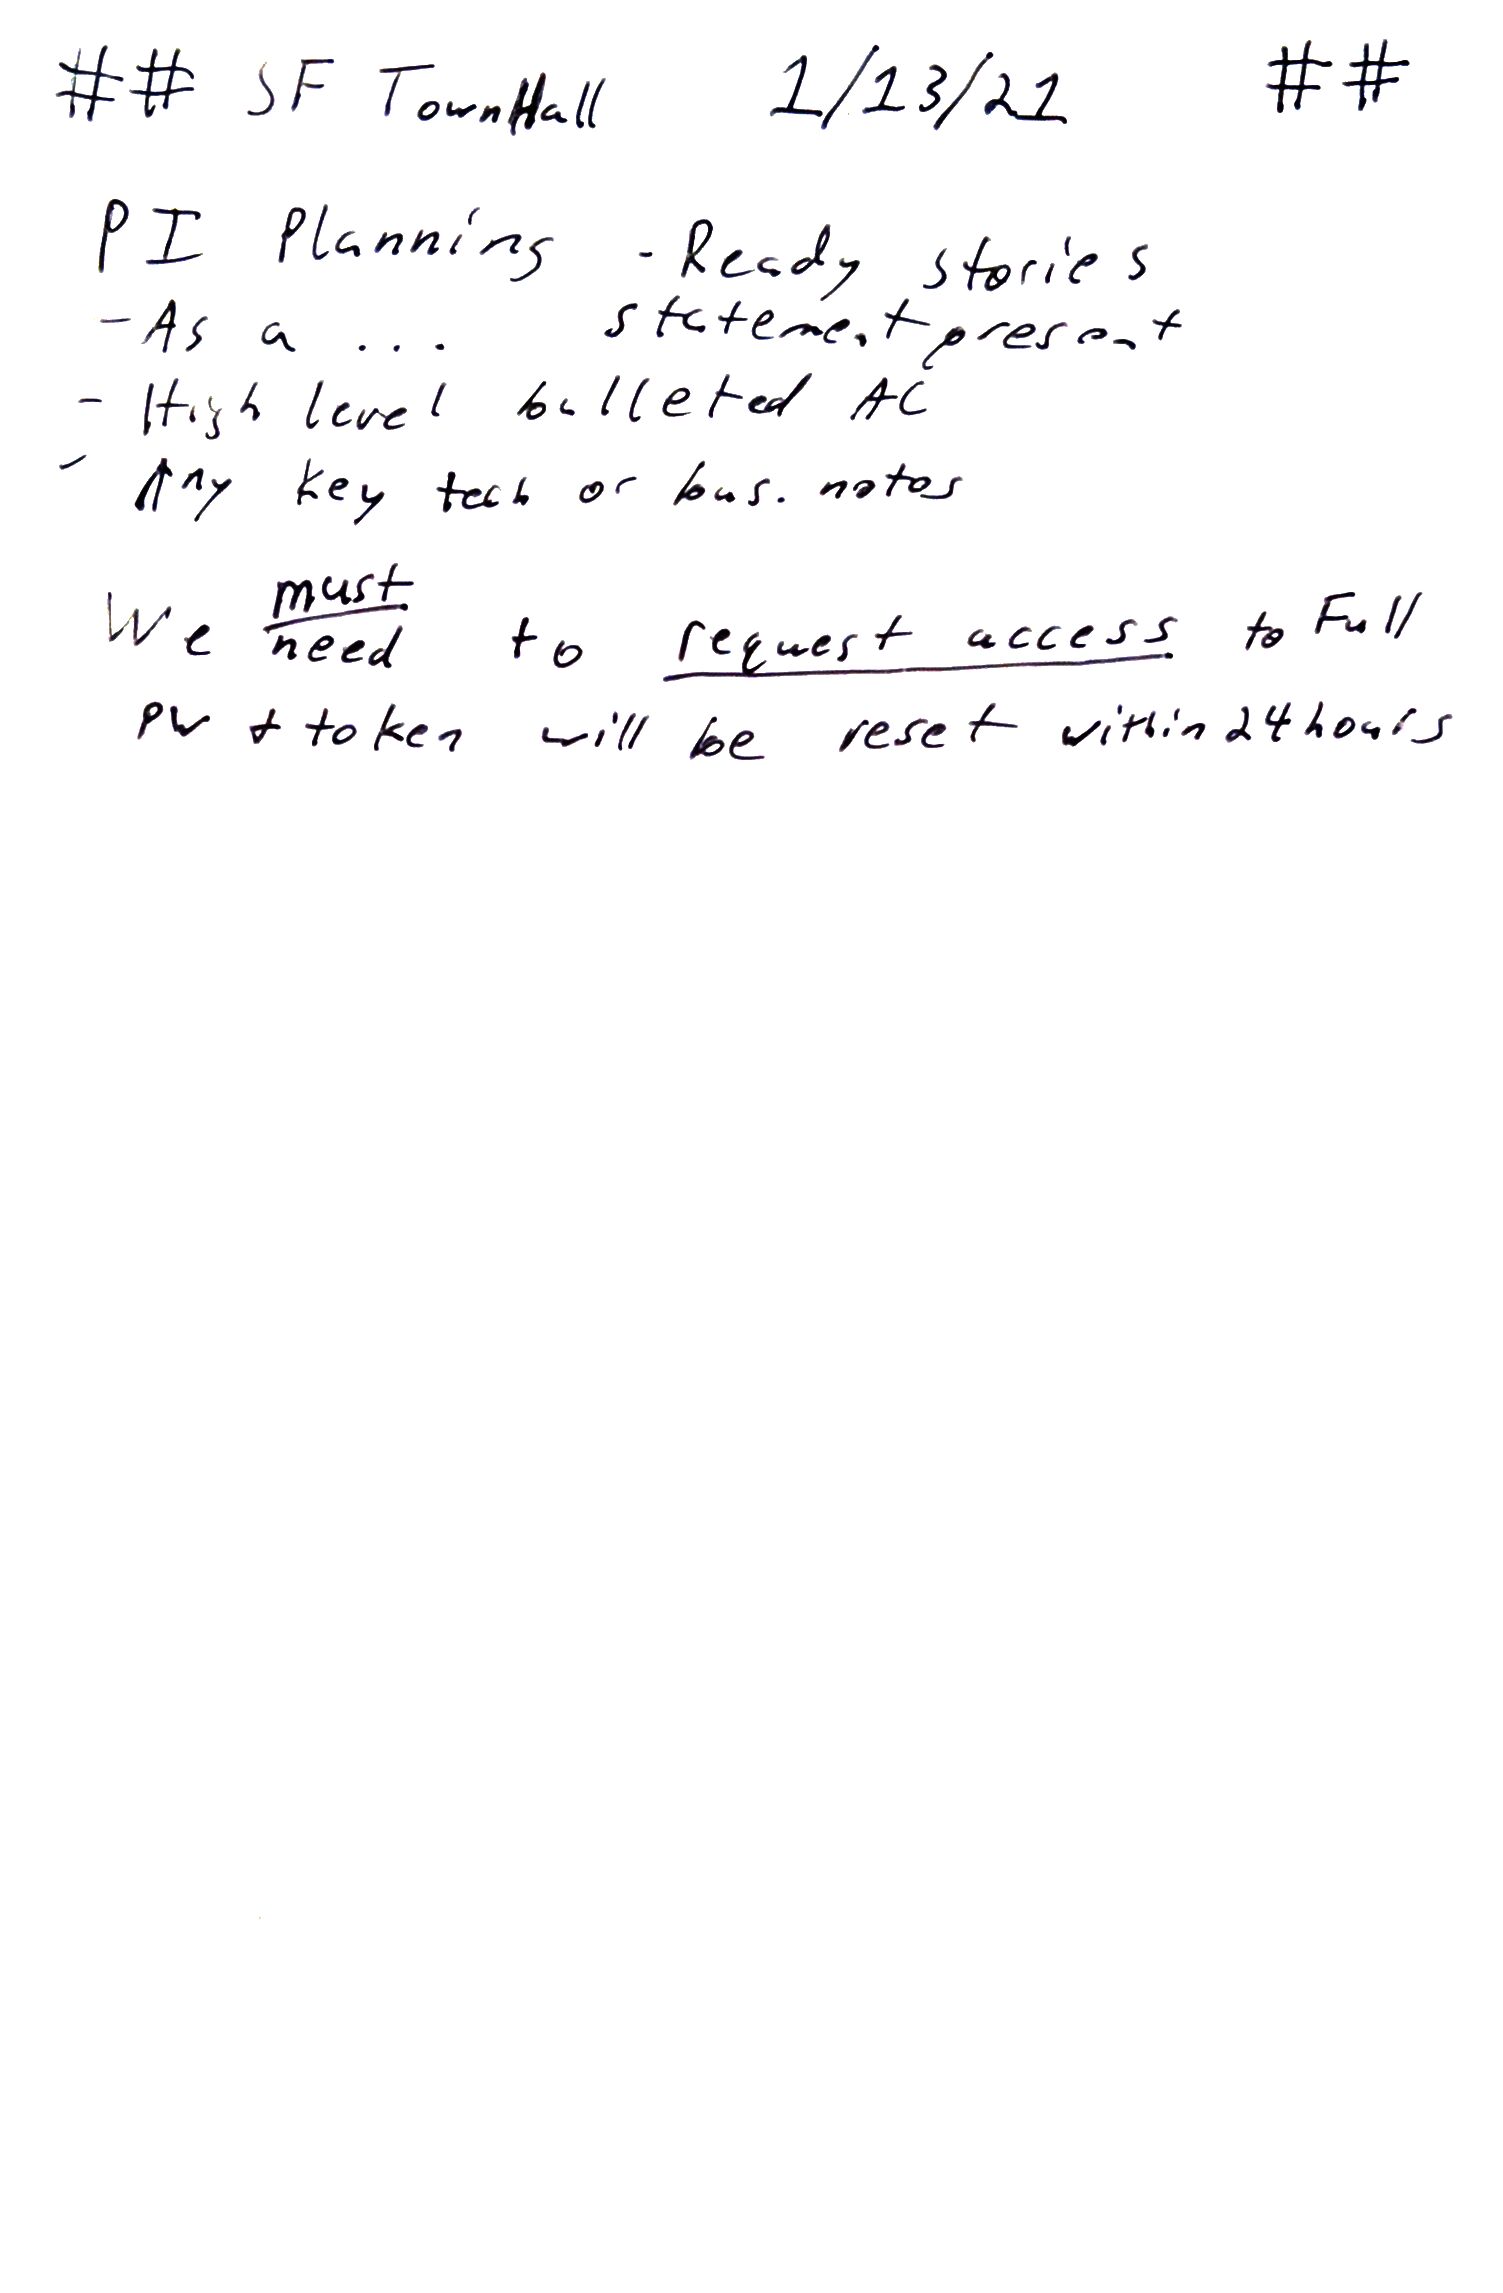 ## SF TownHall 1/13/21 ##
PI Planning - Ready stories
- As a ... statement present
- High level bulleted AC
- Any key tech or bus. notes
must
We need to request access to Full
PW + token will be reset within 24 hours